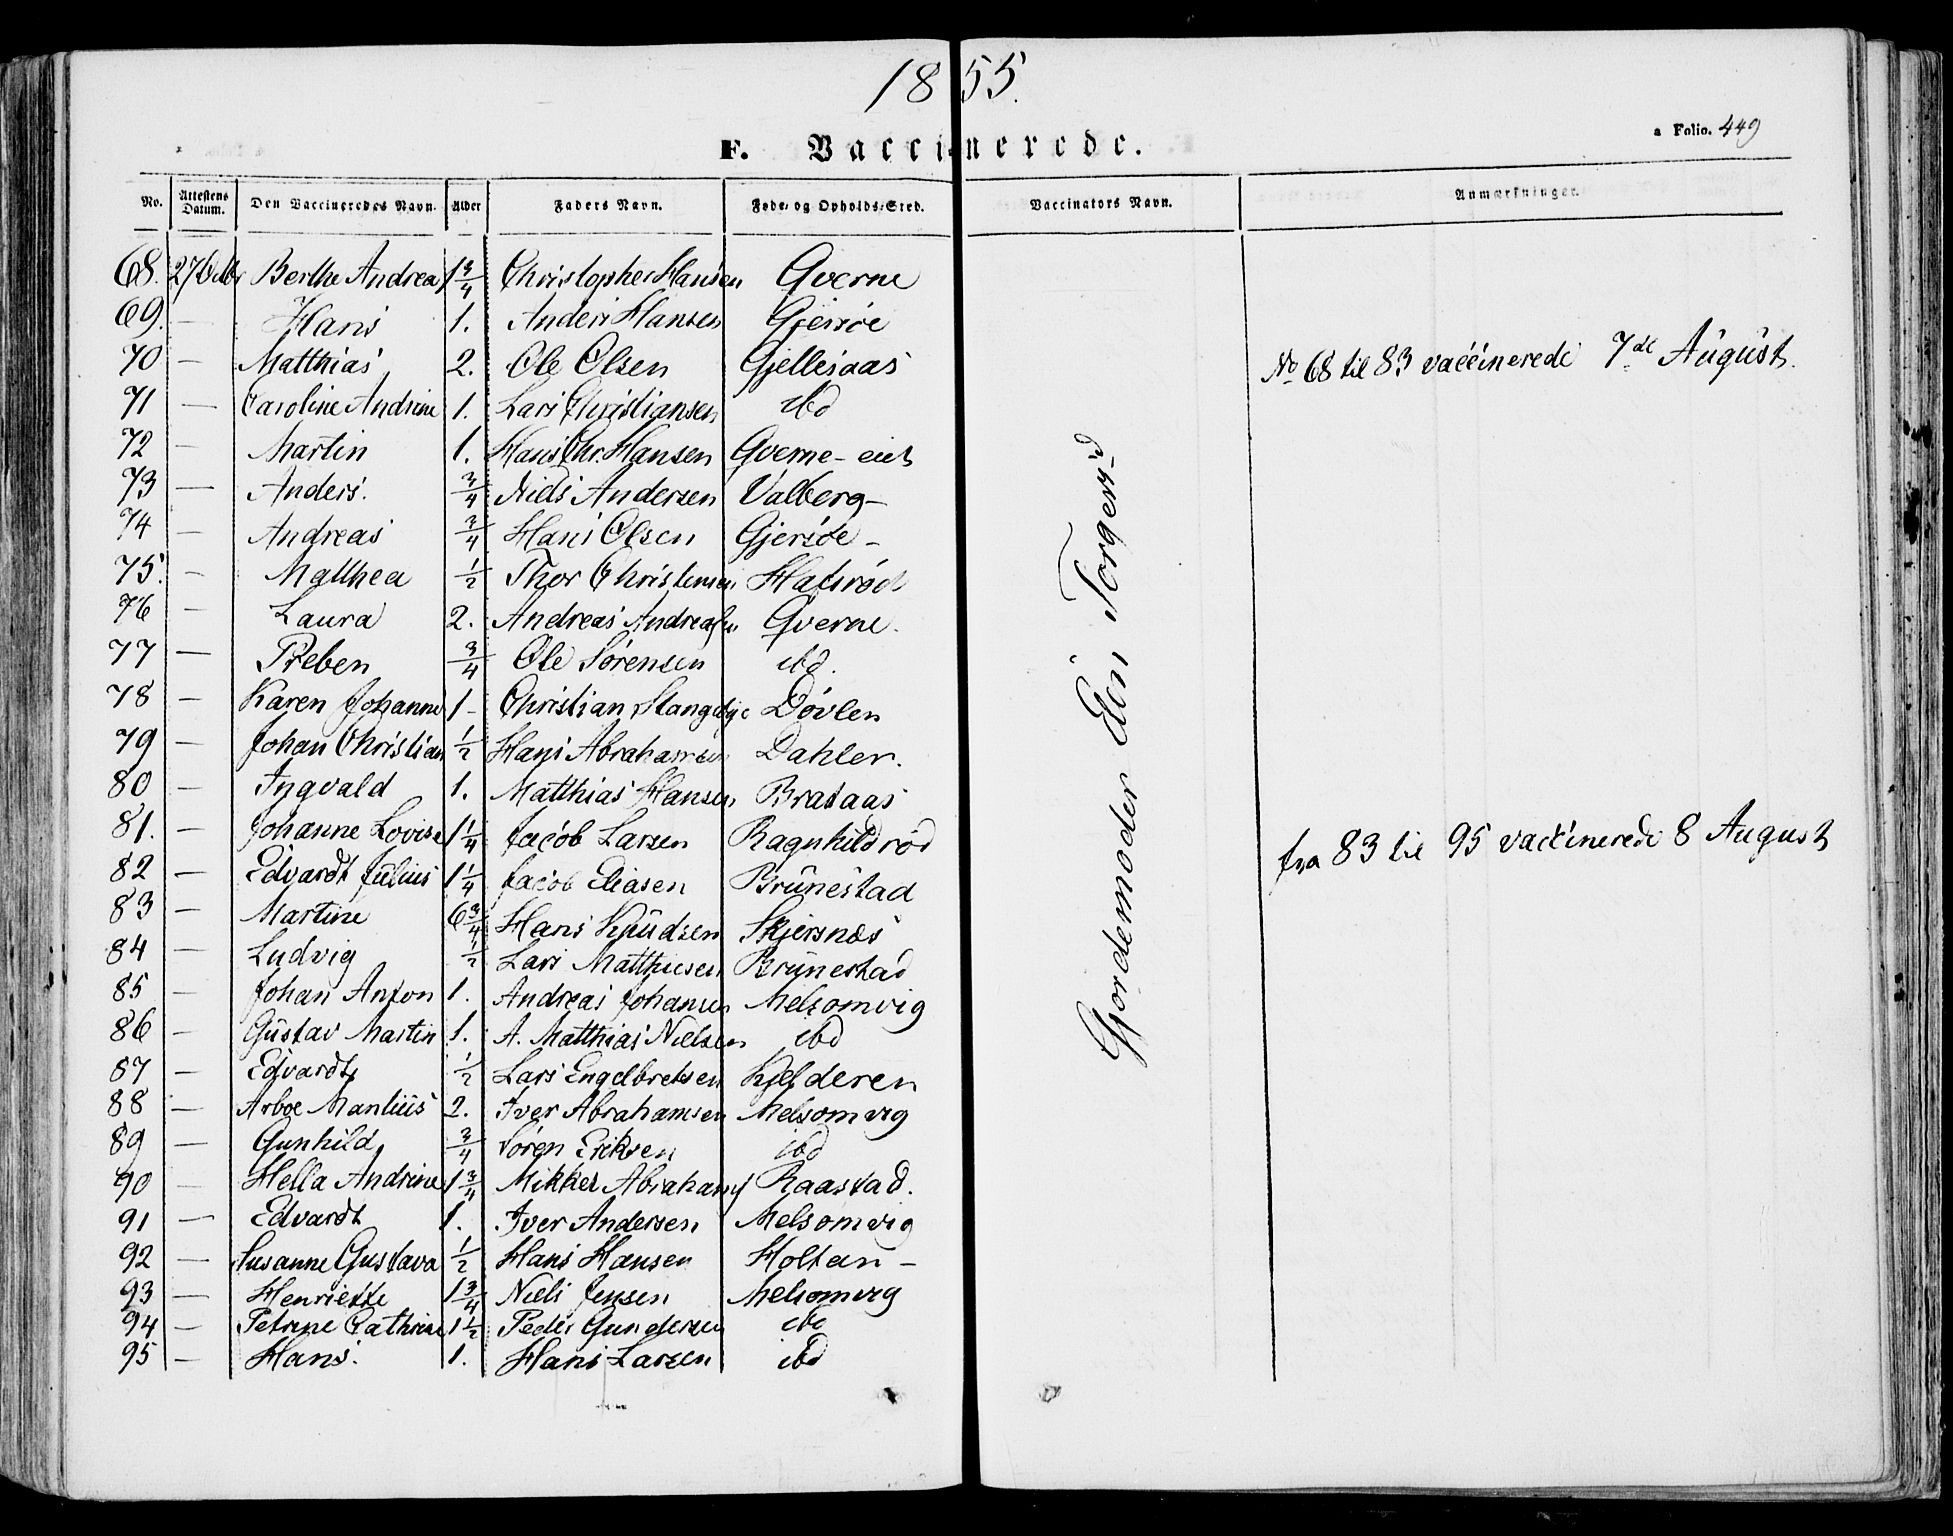 1855.
F. Vaccinerede.
a Folio. 449
No. Attestens Datum. Den Vaccineredes Navn. Alder Faders Navn. Føde- og Opholds-Sted. Vaccinators Navn. Anmærkninger.
68. Berthe Andrea 1 3/4 Christopher Hansen Gverne
69. — Hans 1. Anders Hansen Gjersøe
70 — Matthias 2. Ole Olsen Gjellesaas
No 68 til 83 vaccinerede 7de August.
71 — Caroline Andrine 1. Lars Christiansen ibd
72 — Martin 1. Hans Chr. Hansen Gverne-eiet
73 — Anders. 3/4 Niels Andersen Valberg-
74 — Andreas 3/4 Hans Olsen Gjersøe-
75. — Matthea 1/2 Thor Christensen Hatsrød
76 — Laura 2. Andreas Andreasen Gverne.
77 — Preben 3/4 Ole Sørensen ibd.
78 — Karen Johanne 1- Christian Døvlen
79 — Johan Christian 1/2 Hans Abrahamsen Dahler.
80 — Ingvald 1. Matthias Hansen Brataas
81. — Johanne Lovise 1 1/4 Jacob Larsen Ragnhildrød
fra 83 til 95 vaccinerede 8 August
82 — Edvardt Julius 1 1/4 Jacob Eliasen Brunestad
83 — Martine 6 3/4 Hans Knudsen Skjersnæs
84 — Ludvig 1/2 Lars Matthiesen Brunestad
85 — Johan Anton 1. Andreas Johansen Melsomvig
86 — Gustav Martin 1. A. Matthias Nielsen ibd
87 — Edvardt 1/2 Lars Engelbretsen Kjelderen
88 — Arboe Manliis 2. Iver Abrahamsen Melsomvig
89 — Gunhild 3/4 Søren Eriksen ibd
90 — Hella Andrine 1 3/4 Mikkel Abrahams Raastad.
91 — Edvardt 1. Iver Andersen Melsomvig
92 — Susanne Gustava 1/2 Hans Hansen Holtan-
93 — Henriette 1 3/4 Niels Jensen Melsomvig
94 — Petrine Cathrine 1 1/2 Peder Gundersen ibd
95 — Hans. 1. Hans Larsen ibd
Gjordemoder Elen